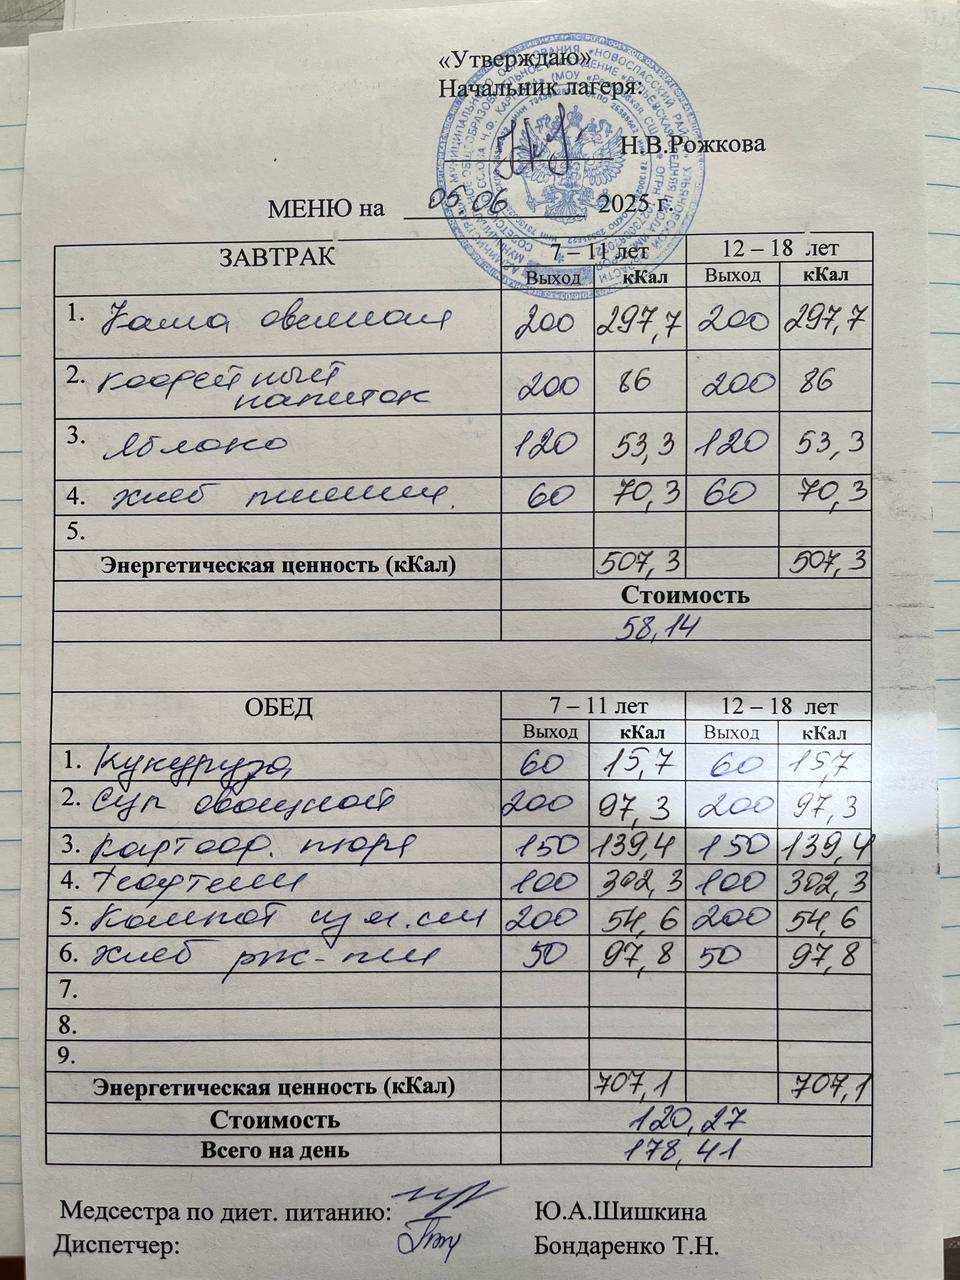 «Утверждаю»
Начальник лагеря:
Н.В.Рожкова
МЕНЮ на 05.06 2025 г.
ЗАВТРАК 7 – 11 лет 12 – 18 лет
Выход кКал Выход кКал
1. Каша овсяная 200 297,7 200 297,7
2. кофейный 200 86 200 86
напиток
3. Яблоко 120 53,3 120 53,3
4. хлеб пшенич. 60 70,3 60 70,3
5.
Энергетическая ценность (кКал) 507,3 507,3
Стоимость
58,14
ОБЕД 7 – 11 лет 12 – 18 лет
Выход кКал Выход кКал
1. Кукуруза 60 15,7 60 15,7
2. Суп овощной 200 97,3 200 97,3
3. картоф. пюре 150 139,4 150 139,4
4. Тефтели 100 302,3 100 302,3
5. Компот из 200 54,6 200 54,6
6. хлеб рж-пш 50 97,8 50 97,8
7.
8.
9.
Энергетическая ценность (кКал) 707,1 707,1
Стоимость 120,27
Всего на день 178,41
Медсестра по диет. питанию: Ю.А.Шишкина
Диспетчер: Бондаренко Т.Н.